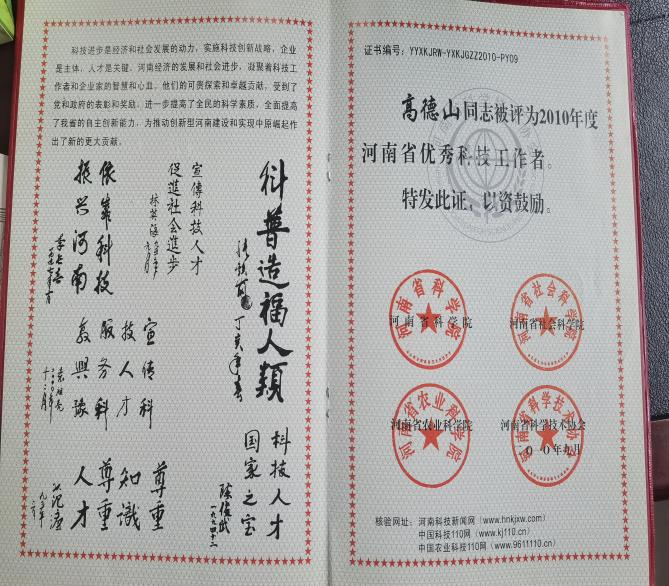 科技进步是经济和社会发展的动力，实施科技创新战略，企业
是主体，人才是关键，河南经济的发展和社会进步，凝聚着科技工
作者和企业家的智慧和心血，他们的可贵探索和卓越贡献，受到了
党和政府的表彰和奖励，进一步提高了全民的科学素质，全面提高
了我省的自主创新能力，为推动创新型河南建设和实现中原崛起作
出了新的更大贡献。
科普造福人類
丁亥年春
宣傳科技人才
促進社會進步
依靠科技
振兴河南
宣传科
技人才
服务科
教興豫
二〇〇〇年
十二月
科技人才
国家之宝
一九九四十二
尊重
知識
尊重
人才
证书编号：YYXKJRW-YXKJGZZ2010-PY09
高德山同志被评为2010年度
河南省优秀科技工作者。
特发此证，以资鼓励。
河南省科学院
河南省科学院
河南省社会科学院
河南省社会科学院
河南省农业科学院
河南省农业科学院
河南省科学技术协会
河南省科学技术协会
核验网址：河南科技新闻网（www.hnkjxw.com）
中国科技110网（www.kj110.cn）
中国农业科技110网（www.9611110.cn）